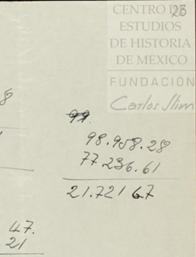 CENTRO DE
26
ESTUDIOS
DE HISTORIA
DE MÉXICO
FUNDACIÓN
Carlos Slim
8
99.
98.958.28
77 236.61
21.721 67
47.
21